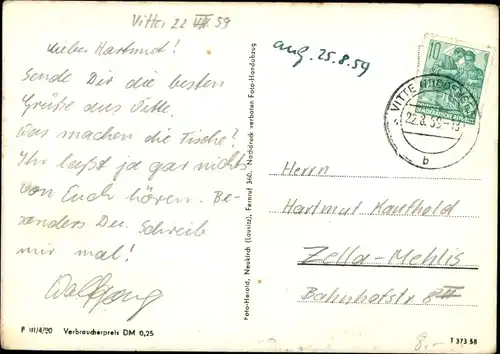 Vitte, 22 VIII 59
Lieber Hartmut!
Sende Dir die besten
Grüße aus Vitte.
Was machen die Fische?
Ihr laßt ja gar nichts
von Euch hören. Be-
sonders Du. Schreib
mir mal!
Wolfgang
P III/4/90 Verbraucherpreis DM 0,25
Foto-Herold, Neukirch (Lausitz), Fernruf 360. Nachdruck verboten Foto-Handabzug
ang. 25.8.59
10
DEUTSCHE DEMOKRATISCHE REPUBLIK
VITTE
22.8.59
b
Herrn
Hartmut Kaufhold
Zella-Mehlis
Bahnhofstr. 8 II
8,-
T 373 58